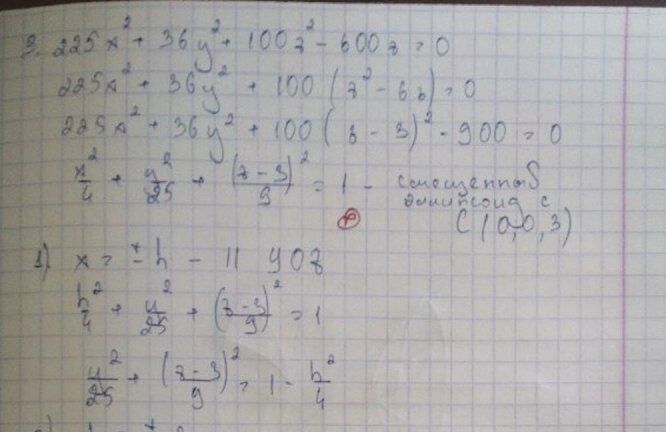 3. 225x² + 36y² + 100z² - 600z = 0
225x² + 36y² + 100(z² - 6z) = 0
225x² + 36y² + 100(z - 3)² - 900 = 0
x²/4 + y²/25 + (z - 3)²/9 = 1 - смещенный
эллипсоид с
C(0,0,3)
1) x = ± h - || yOz
h²/4 + y²/25 + (z - 3)²/9 = 1
y²/25 + (z - 3)²/9 = 1 - h²/4